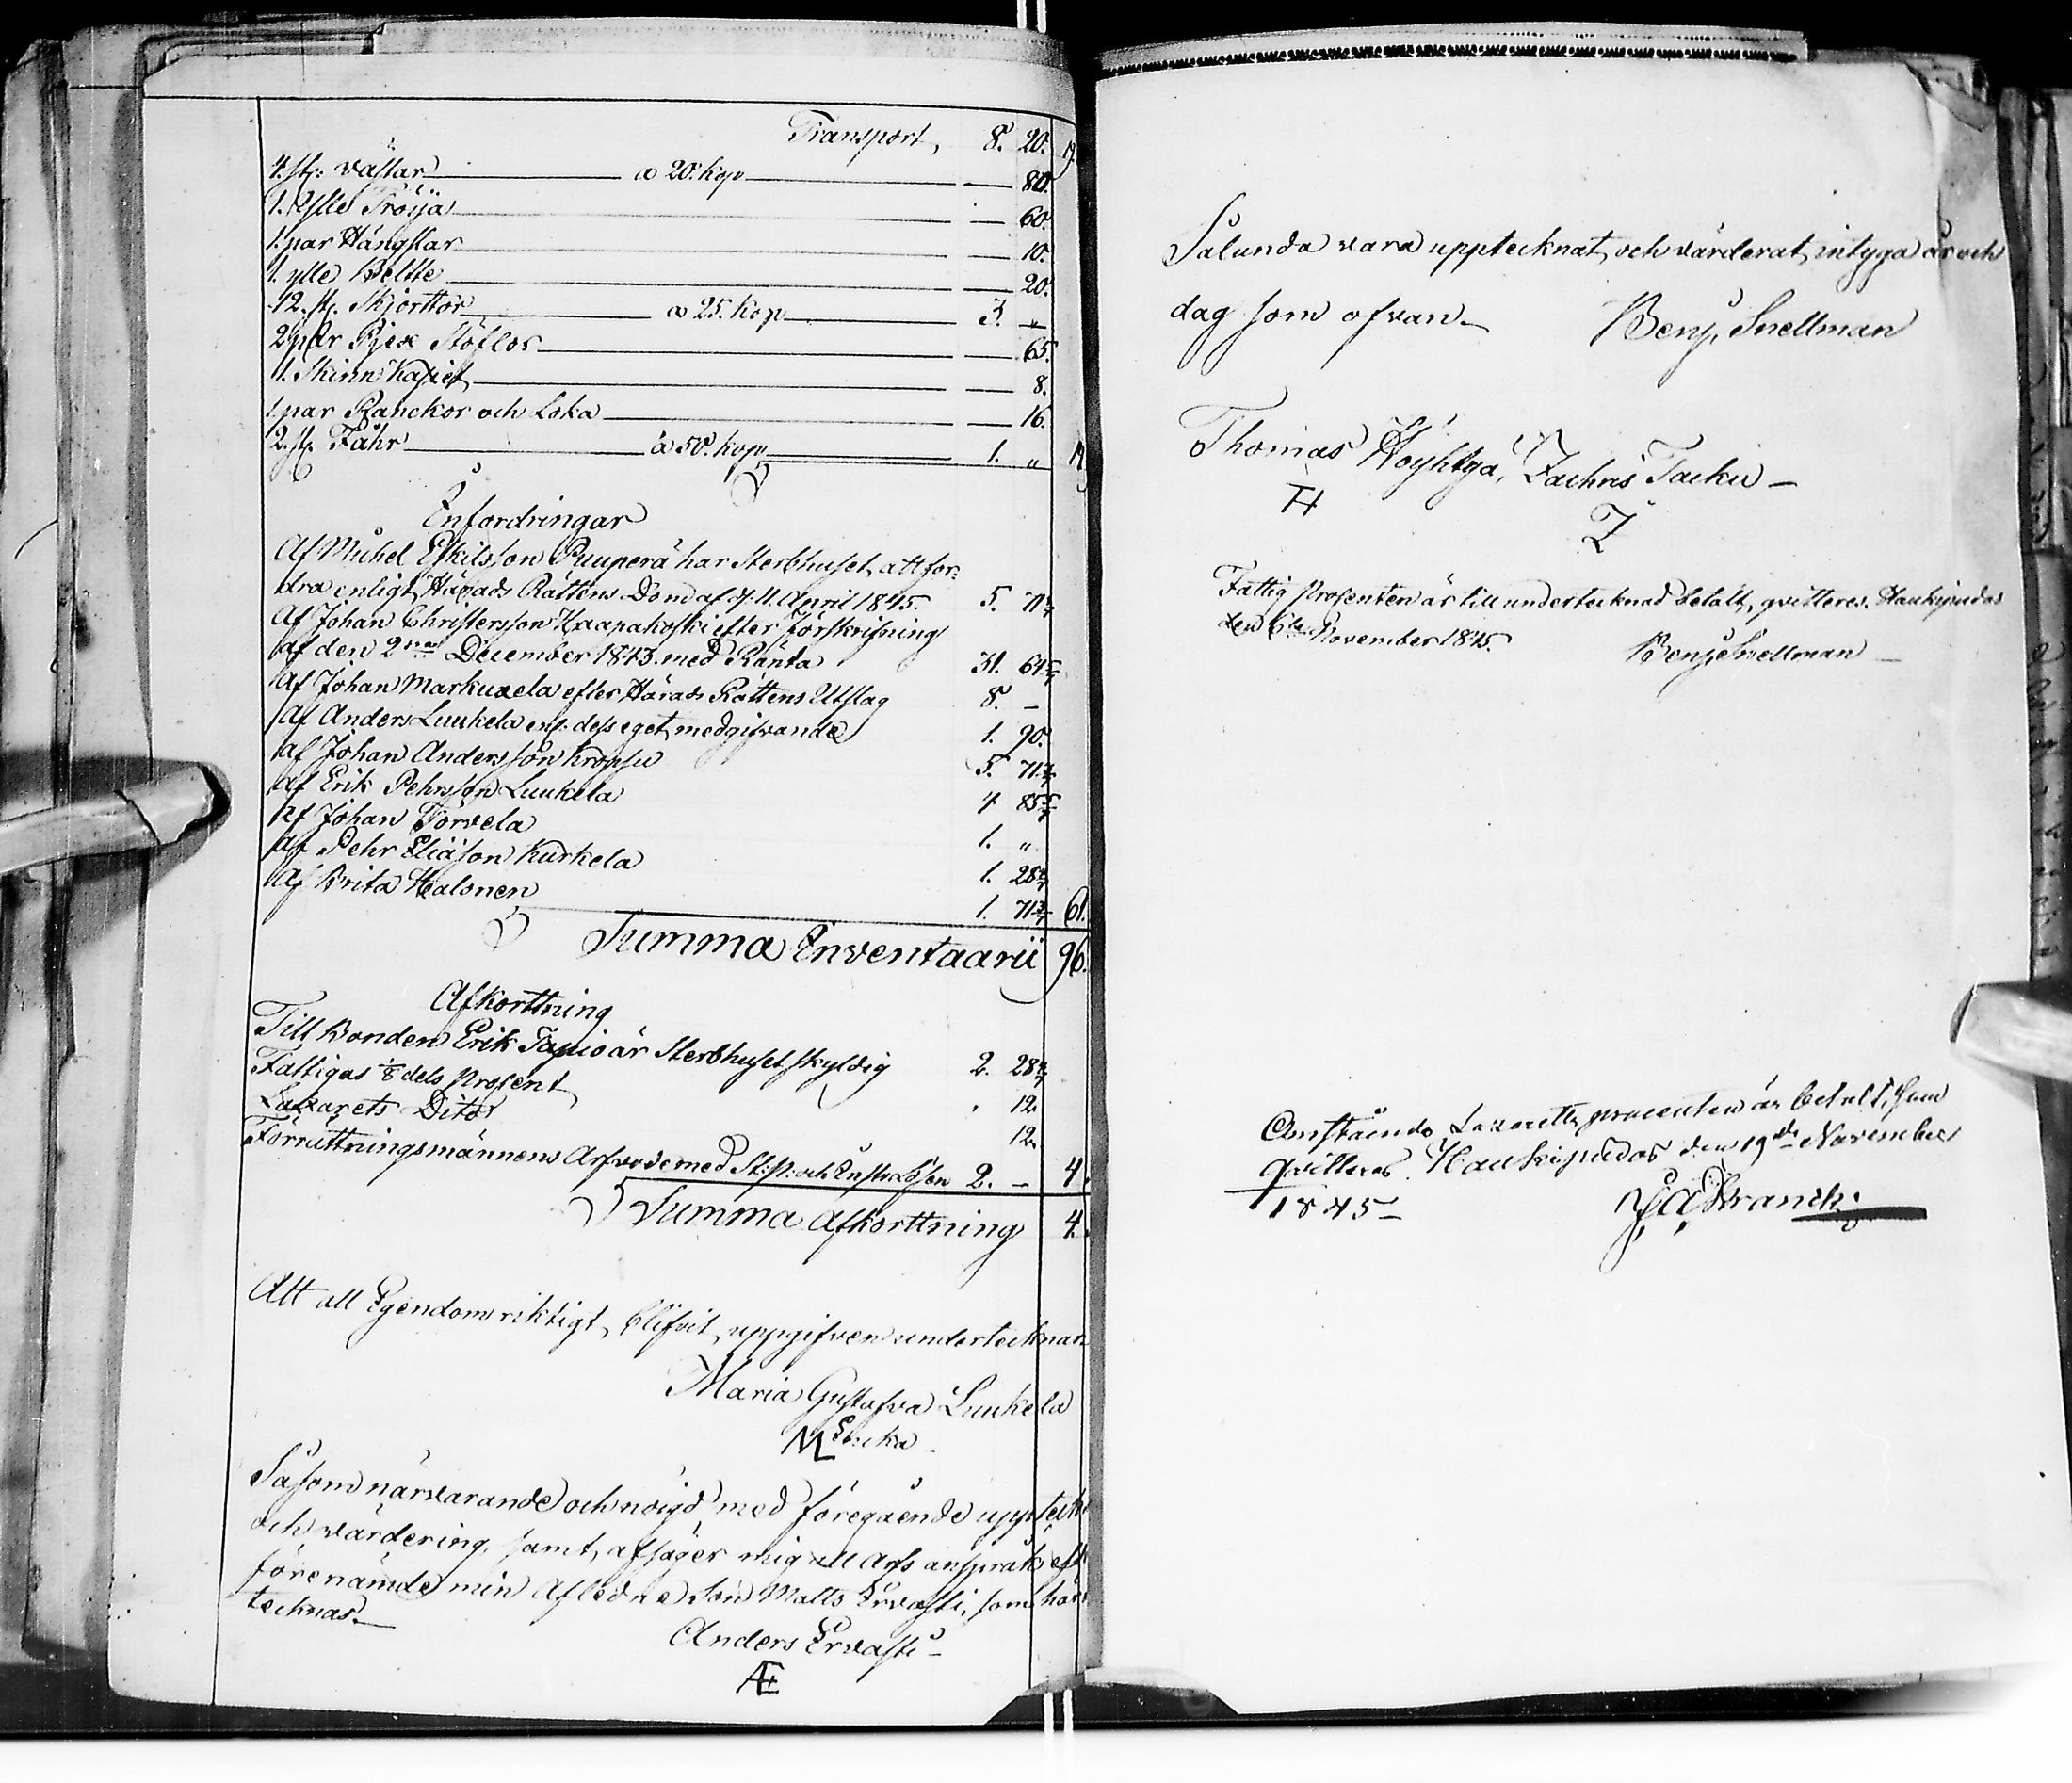 Transport, 8. 20.
4. st: västar a 20. kop 80.
1. Ylle Tröija 60.
1. par Hängslar 10.
1. ylle Bellte 20.
12. st. Skjorttor a 25. kop 3. "
2 par Pjex Stöflor 65.
1. Skinn 8.
1. par Ranckor och Loka 16.
2. st. Fåhr à 50. kop 1. "
Infordringar
Af Mickel Eskilsson Puuperä har Sterbhuset att for-
dra enligt Härads Rättens Dom af d. 11. April 1845. 5. 71 3/7
Af Johan Christersson Haapakoski efter Förskrifning
af den 2dra December 1843. med Ränta 31. 61 5/7
Af Johan Markuxela efter Härads Rättens Utslag 8. -
Af Anders Luukela enl. dess eget medgifvande 1. 90.
af Johan Andersson Kropsu 5. 71 3/7
af Erik Pehrsson Luukela 4 85 5/7
Af Johan Törvela 1. "
af Pehr Eliäson Kurkela 1. 28 4/7
Af Brita Halonen 1. 71 3/7 61.
Summa Inventaarii 96.
Afkorttning
Till Bonden Erik Tapio är Sterbhuset skyldig 2. 28 4/7
Fattigas 1/8 dels Prosent 12.
Lazarets Dito 12.
Förrättningsmännens Arfvode med St: p: och Lösen 2. - 4.
Summa Afkorttning 4.
Att all Egendom riktigt blifvit uppgifven undertecknar
Maria Gustafva Luukela
ML Enka
Såsom närvarande och nöigd med föregående uppteckn
och värdering, samt afsäger mig all arfs anspråk eft
förenämde min Afledne Son Matts Ervasti, som här
tecknas.
Anders Ervasti
AE
Sålunda vara upptecknat och värderat, intyga år och
dag som ofvan. Benj. Snellman
Thomas Höyhtyä, Zachris Tacku
TH Z
Fattig Prosenten är till undertecknad betalt, qvitteres. Haukipudas
den 6te November 1845. Benj. Snellman
Omstående Lazaretts procenten är betalt, som
qvitteras. Haukipudas den 19de November
1845 J A Franck